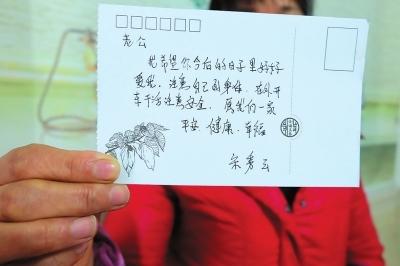 老公
我希望你今后的日子里好好
爱我,注意自己的身体,在外开
车干活注意安全,愿我们一家
平安,健康,幸福
宋秀云